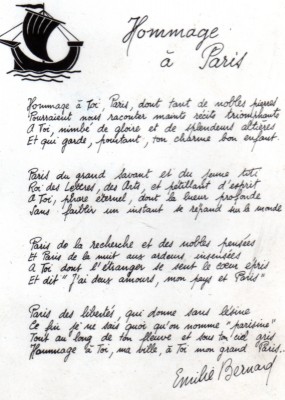 Hommage
à Paris
Hommage à Toi, Paris, dont tant de nobles pierres
Pourraient nous raconter maints récits triomphants
A Toi, nimbé de gloire et de splendeurs altières
Et qui garde, pourtant, ton charme bon enfant
Paris du grand savant et du jeune
Roi des Lettres, des Arts, et pétillant d'esprit
A Toi, phare éternel, dont la lueur profonde
Sans faiblir un instant se répand sur le monde
Paris de la recherche et des nobles pensées
Et Paris de la nuit aux ardeurs insensées
A Toi dont l'étranger se sent le cœur épris
Et dit "J'ai deux amours, mon pays et Paris"
Paris des libertés, qui donne sans lésine
Ce fin je ne sais quoi qu'on nomme "parisine"
Tout au long de ton fleuve et sous ton ciel gris
Hommage à Toi, ma ville, à Toi mon grand Paris..
Emilie Bernard